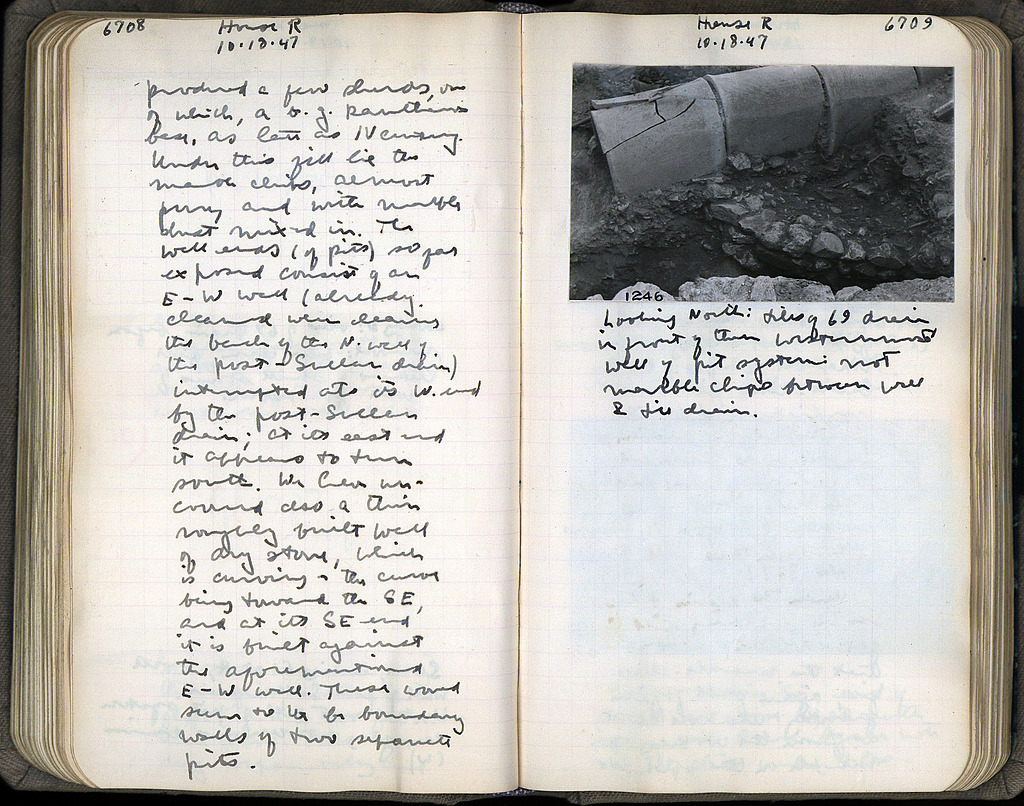 6708
House R
10·18·47
produced a few sherds, one
of which, a b.g. kantharos
base, as late as IV century.
Under this fill lie the
marble chips, almost
pure and with marble
dust mixed in. The
wall ends (of pits) so far
exposed consist of an
E-W wall (already
cleaned when clearing
the back of the N. wall of
the post-Sullan drain)
interrupted at its W. end
by the post-Sullan
drain; at its east end
it appears to turn
south. We have un-
covered also a thin
roughly built wall
of dry stone, which
is curving - the curve
being toward the SE,
and at its SE end
it is built against
the aforementioned
E-W wall. These would
seem to be boundary
walls of two separate
pits.
House R
10·18·47
6709
1246
Looking North: tiles of 69 drain
in front of them
wall of pit system: not
marble chips between wall
& tile drain.